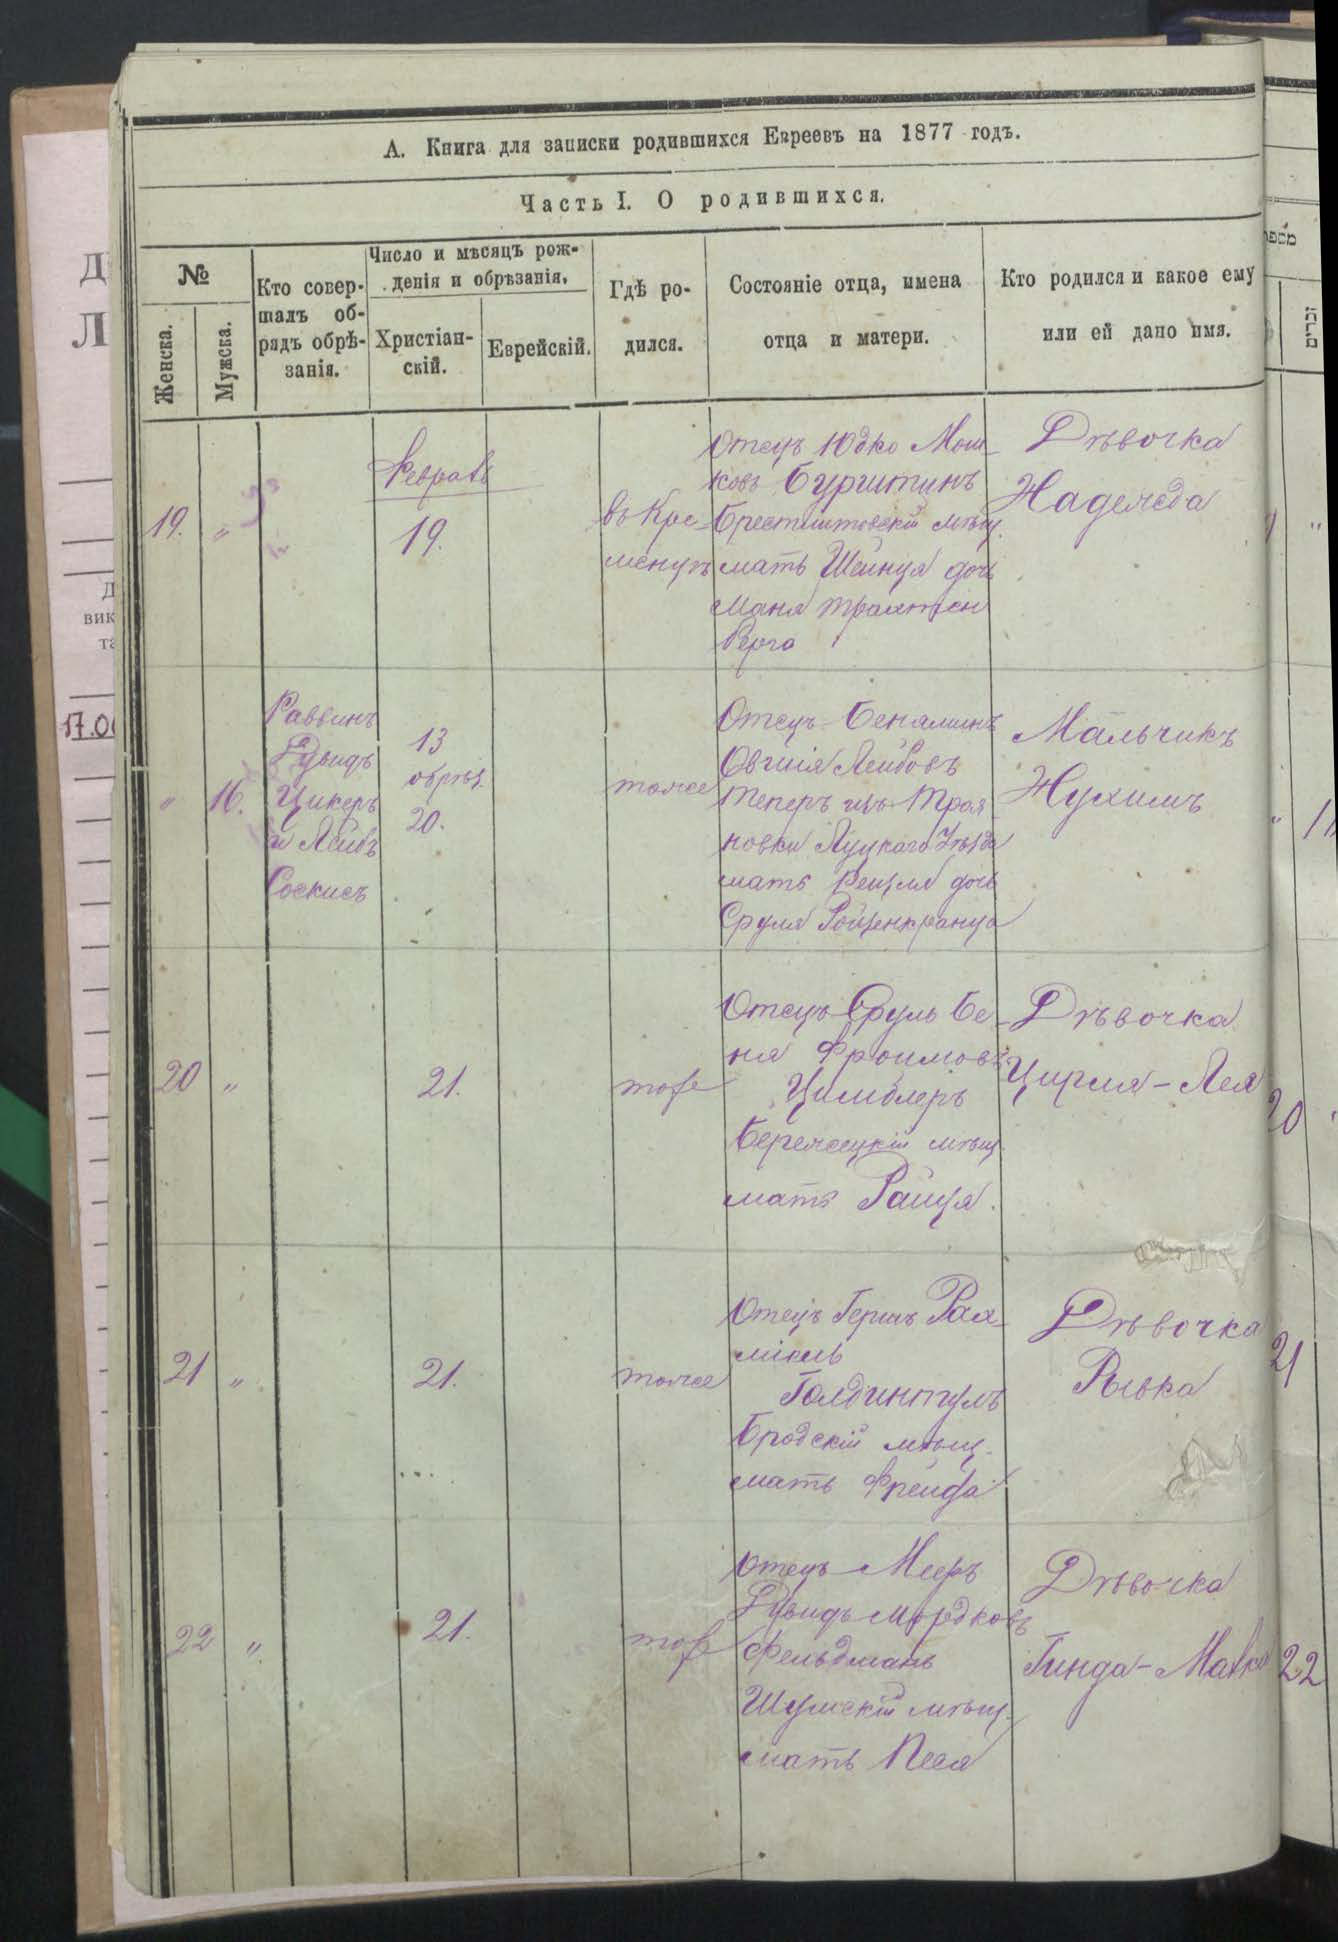 А. Книга для записки родившихся Евреевъ на 1877 годъ.
Часть I. О родившихся.
№
Женска.
Мужска.
Кто совер-
шалъ об-
рядъ обрѣ-
занія.
Число и мѣсяцъ рож-
денія и обрѣзанія.
Христіан-
скій.
Еврейскій.
Гдѣ ро-
дился.
Состояніе отца, имена
отца и матери.
Кто родился и какое ему
или ей дано имя.
19. "
Февраль
19.
въ Кре-
менцѣ
Отецъ Юдко Мош-
ковъ Бурштинъ
мѣщ.
мать Шейнця дочь
Маня Трахтен
берга
Дѣвочка
Надежда
" 16.
Раввинъ
Дувидъ
Цикеръ
и Лейбъ
Соскисъ
13
обрѣз.
20.
тоже
Отецъ Бенямин
Овшія Лейбовъ
Теперъ изъ Троя
новки Луцкаго Уѣзда
мать Рейзля дочь
Сруля Ройзенкранца
Мальчикъ
Нухимъ
20 "
21.
тоже
Отецъ Сруль Бе-
ня Фроимовъ
Цимблеръ
Бережецкій мѣщ.
мать Райця.
Дѣвочка
Цирля-Лея
21 "
21.
тоже
Отецъ Гершъ Рах
міель
Голдинтулъ
Бродскій мѣщ.
мать Фрейда
Дѣвочка
Рывка
22 "
21.
тоже
Отецъ Мееръ
Дувидъ Мордковъ
Фельдманъ
Шумскій мѣщ.
мать Песя
Дѣвочка
Гинда-Малка
זכרים
20
21
22
17.0